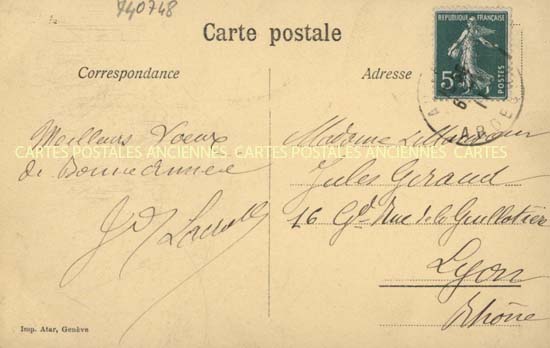 740748
Carte postale
Correspondance
Adresse
REPUBLIQUE FRANÇAISE
5c
POSTES
ARDE
Meilleurs Voeux
de Bonne Année
CARTES POSTALES ANCIENNES CARTES POSTALES ANCIENNES CARTES POSTALES ANCIENNES
Madame
Jules Geraud
16 Gde Rue de la Guillotière
Lyon
Rhône
Imp. Atar, Genève